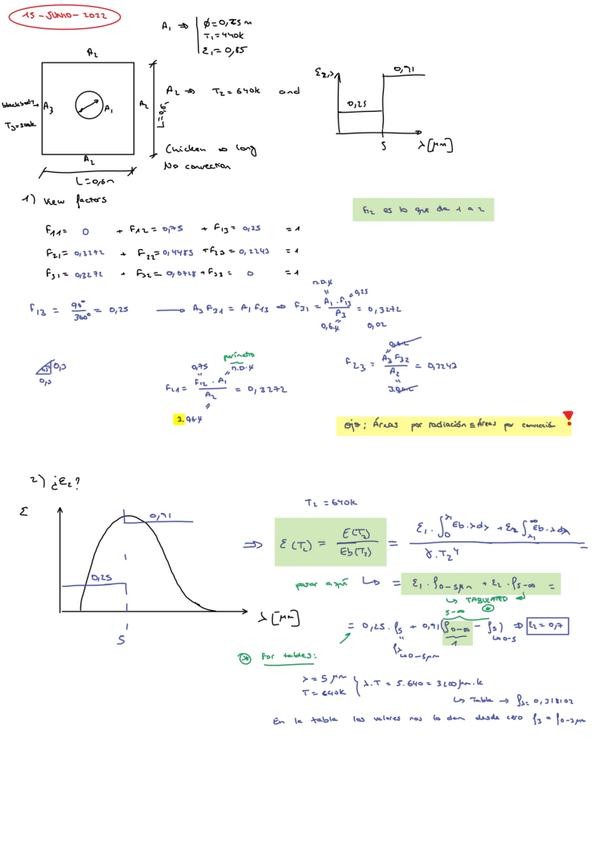 15-JUNIO-2022
A₁ ⇒ | ϕ=0,25m
T₁=440k
ε₁=0,85
A₂
blackbody
A₃
A₁
A₂
T₃=500k
L=0,6m
A₂
L=0,6m
A₂ ⇒ T₂=640k and
Chicken ∞ long
No convection
ε₂,λ
0,25
0,91
5
λ[μm]
1) View factors
F₁₂ es lo que da 1 a 2
F₁₁= 0 + F₁₂=0,75 + F₁₃=0,25 =1
F₂₁=0,3272 + F₂₂=0,4485 + F₂₃=0,2243 =1
F₃₁=0,3272 + F₃₂=0,6728 + F₃₃= 0 =1
F₁₃ = 90°/360° = 0,25 → A₃F₃₁=A₁F₁₃ ⇒ F₃₁= A₁·F₁₃/A₃ = 0,3272
π·ϕ·L
0,25
0,6·L
0,3
0,3
F₂₁= F₁₂·A₁/A₂ = 0,3272
0,75
perímetro
π·ϕ·L
3·0,6·L
F₂₃= A₃F₃₂/A₂ = 0,2243
0,6·L
3·0,6·L
ojo; Áreas por radiación ≠ Áreas por convección !
2) ¿ε₂?
ε
0,25
0,91
5
λ[μm]
T₂=640k
⇒ ε(T₂) = E(T₂)/Eb(T₂) = ε₁·∫₀^λ₁ Eb·λdλ + ε₂∫_λ₁^∞ Eb·λdλ / γ·T₂⁴
pasar aquí ↳ = ε₁·f₀₋₅μm + ε₂·f₅₋∞ =
↳ TABULATED
5-∞
= 0,25·f₅ + 0,91(f₀₋∞ - f₅) ⇒ ε₂=0,7
1
fλ
↳0-5μm
↳0-5
⊛ For tables:
λ=5μm
T=640k } λ.T = 5·640 = 3200μm.k
↳ Table → fλ=0,318102
En la table los valores nos lo dan desde cero f₃=f₀₋₃μm